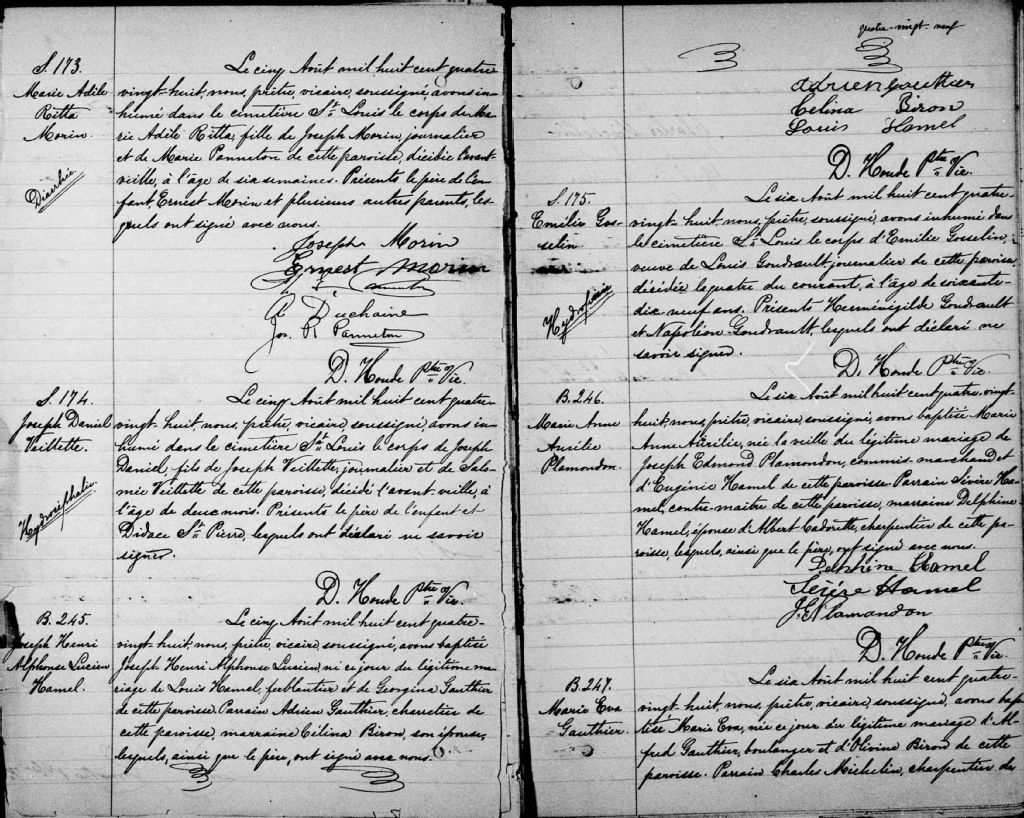 S. 173.
Marie Adile
Ritta
Morin.
Diarrhée
Le cinq Août mil huit cent quatre
vingt-huit, nous, prêtre, vicaire, soussigné, avons in-
humé dans le cimetière St Louis le corps de Ma-
rie Adile Ritta, fille de Joseph Morin, journalier
et de Marie Panneton de cette paroisse, décédée l'avant-
veille, à l'âge de six semaines. Présents le père de l'en-
fant, Ernest Morin et plusieurs autres parents, les-
quels ont signé avec nous.
Joseph Morin
Ernest Morin
Duchaine
Jos. R Panneton
D. Houde Ptre Vic.
S. 174.
Joseph Daniel
Veillette.
Hydrocéphalie.
Le cinq Août mil huit cent quatre
vingt-huit, nous, prêtre, vicaire, soussigné, avons in-
humé dans le cimetière St Louis le corps de Joseph
Daniel, fils de Joseph Veillette, journalier et de Salo-
mée Veillette de cette paroisse, décédé l'avant-veille, à
l'âge de deux mois. Présents le père de l'enfant et
Didace St Pierre, lesquels ont déclaré ne savoir
signer.
D. Houde Ptre Vic.
B. 245.
Joseph Henri
Alphonse Lucien
Hamel.
Le cinq Août mil huit cent quatre-
vingt-huit, nous, prêtre, vicaire, soussigné, avons baptisé
Joseph Henri Alphonse Lucien, né ce jour du légitime ma-
riage de Louis Hamel, ferblantier et de Georgina Gauthier
de cette paroisse. Parrain Adrien Gauthier, charretier de
cette paroisse, marraine Célina Biron, son épouse,
lesquels, ainsi que le père, ont signé avec nous.
quatre-vingt-neuf
Adrien Gauthier
Célina Biron
Louis Hamel
D. Houde Ptre Vic.
S. 175.
Emilie Gos-
selin
Hydropisie
Le six Août mil huit cent quatre-
vingt-huit, nous, prêtre, soussigné, avons inhumé dans
le cimetière St Louis le corps d'Emilie Gosselin,
veuve de Louis Goudrault, journalier de cette paroisse,
décédée le quatre du courant, à l'âge de soixante-
dix-neuf ans. Présents Herménigilde Goudrault
et Napoléon Goudrault, lesquels ont déclaré ne
savoir signer.
D. Houde Ptre Vic.
B. 246.
Marie Anne
Aurélie
Plamondon.
Le six Août mil huit cent quatre-vingt-
huit, nous, prêtre, vicaire, soussigné, avons baptisé Marie
Anne Aurélie, née la veille du légitime mariage de
Joseph Edmond Plamondon, commis-marchand et
d'Eugénie Hamel de cette paroisse. Parrain Sévère Ha-
mel, contre-maître de cette paroisse, marraine Delphine
Hamel, épouse d'Albert Cadorette, charpentier de cette pa-
roisse, lesquels, ainsi que le père, ont signé avec nous.
Delphine Hamel
Sévère Hamel
J. E. Plamondon
D. Houde Ptre Vic.
B. 247.
Marie Eva
Gauthier.
Le six Août mil huit cent quatre-
vingt-huit, nous, prêtre, vicaire, soussigné, avons bap-
tisé Marie Eva, née ce jour du légitime mariage d'Al-
fred Gauthier, boulanger et d'Olivine Biron de cette
paroisse. Parrain Charles Michelin, charpentier de